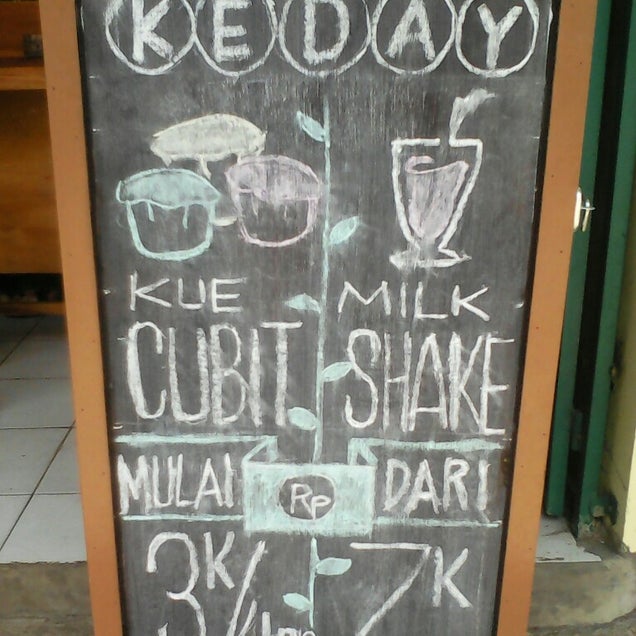 KEDAY
KUE
CUBIT
MILK
SHAKE
MULAI Rp DARI
3K/
7K